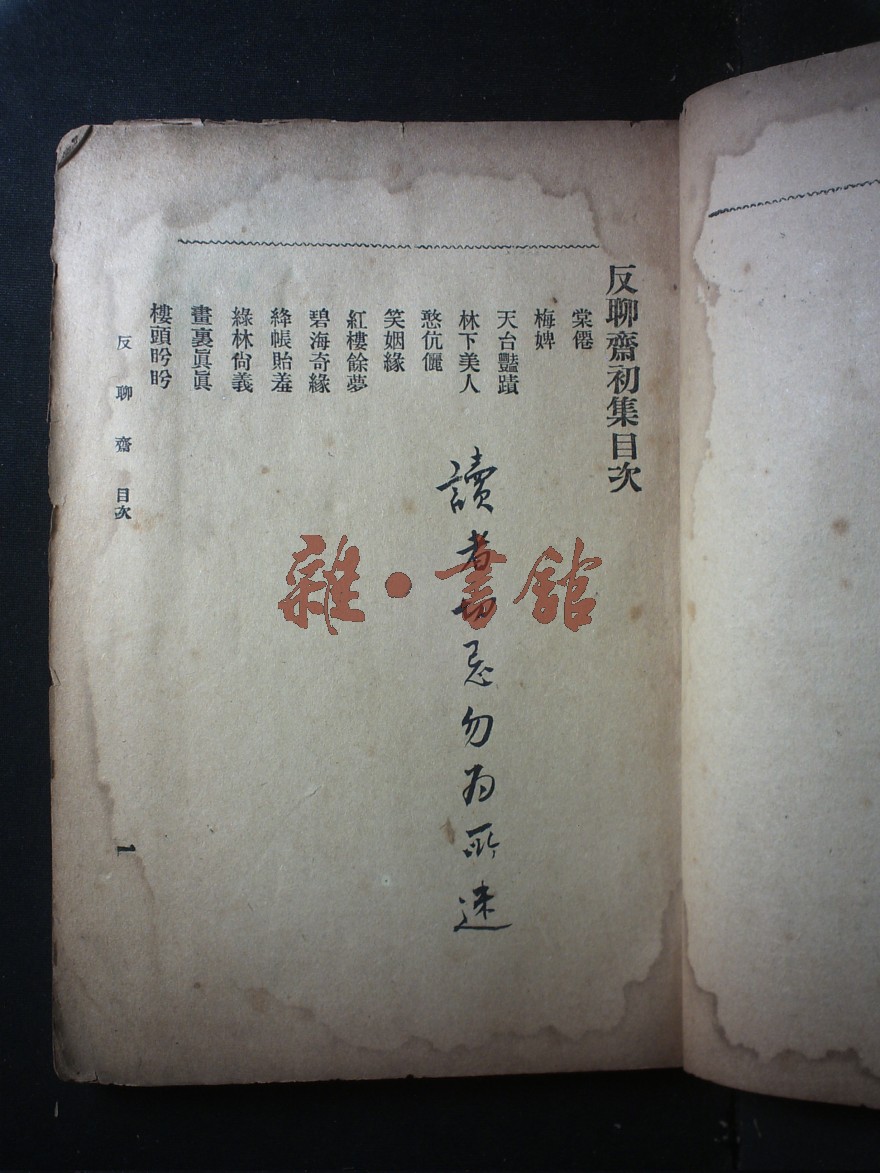 反聊齋初集目次
棠僊
梅婢
天台豔蹟
林下美人
憨伉儷
笑姻緣
紅樓餘夢
碧海奇緣
絳帳貽羞
綠林尙義
畫裏眞眞
樓頭盻盻
反聊齋 目次
1
讀者切忌勿为所迷
雜·書館